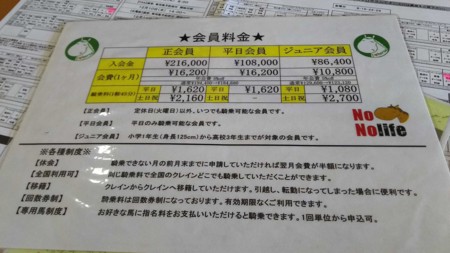 ★会員料金★
正会員 平日会員 ジュニア会員
入会金 ¥216,000 ¥108,000 ¥86,400
会費(1ヶ月) ¥16,200 ¥16,200 ¥10,800
平日 ¥1,620 平日 ¥1,620 平日 ¥1,080
土日祝 ¥2,160 土日祝 - 土日祝 ¥2,700
【正会員】 定休日(火曜日)以外、いつでも騎乗可能な会員です。
【平日会員】 平日のみ騎乗可能な会員です。
【ジュニア会員】 小学1年生(身長125cm)から高校3年生までが対象の会員です。
No
No life
※各種制度※
【休会】 騎乗できない月の前月末までに申請していただければ翌月会費が半額になります。
【全国利用可】 同じ騎乗料で全国のクレインどこでも騎乗していただくことができます。
【移籍】 クレインからクレインへ移籍していただけます。引越し、転勤になってしまった場合に便利です。
【回数券制】 騎乗料は回数券制になっております。有効期限なくご利用できます。
【専用馬制度】 お好きな馬に指名料をお支払いいただけると騎乗できます。1回単位から申込可。